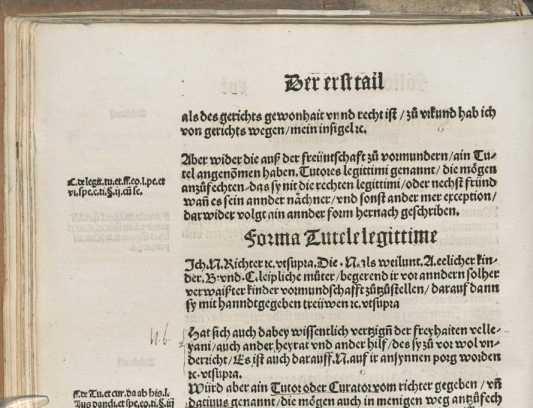 Der erst tail
als des gerichts gewonhait vnnd recht ist / zů vrkund hab ich
von gerichts wegen / mein insigel ꝛc.
Aber wider die auß der freüntschafft zů vormundern / ain Tu-
tel angenom̃en haben. Tutores legittimi genannt / die mögen
anzůfechten das sy nit die rechten legittimi / oder nechst fründ
wañ es sein annder nächner / vnd sonst ander mer exception /
dar wider volgt ain annder form hernach geschriben.
C. de legit. tu. et. ff. eo. l. pe. et
vi. spe. c. ti. §. ij. cū se.
Forma Tutele legittime
Ich. N. Richter ꝛc. vtsupra. Die. N. als weilunt. A. eelicher kin-
der. B. vnd. C. leipliche můter / begerend ir vor anndern solher
verwaißter kinder vormundschafft zůzůstellen / darauf dann
sy mit hanndtgegeben treüwen ꝛc. vtsupra
Hat sich auch dabey wissentlich vertzigñ der freyhaiten velle-
yani / auch ander heyrat vnd ander hilf / des sy zů vor wol vn-
derricht / Es ist auch darauff. N. auf ir ansynnen porg worden
ꝛc. vtsupra.
Würd aber ain Tutor oder Curator vom richter gegeben / vñ
datiuus genannt / die mögen auch in menigen weg antzůfech
ff. de Tu. et cur. da ab his. l.